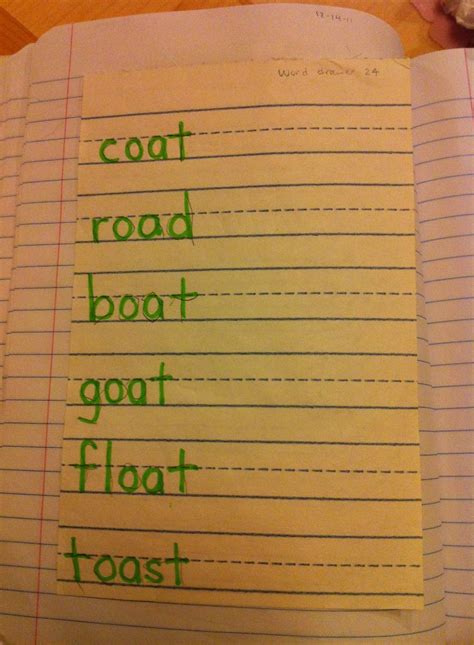 12-14-11
Word drawer 24
coat
road
boat
goat
float
toast